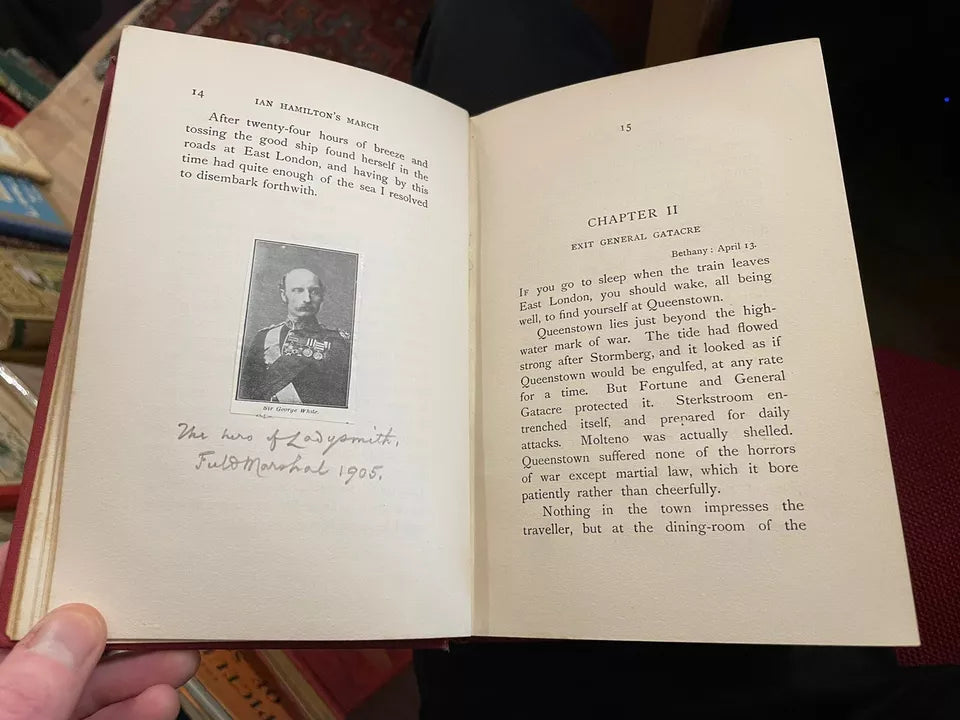 14
IAN HAMILTON'S MARCH
After twenty-four hours of breeze and
tossing the good ship found herself in the
roads at East London, and having by this
time had quite enough of the sea I resolved
to disembark forthwith.
Sir George White.
The hero of Ladysmith.
Field Marshal 1905.
15
CHAPTER II
EXIT GENERAL GATACRE
Bethany: April 13.
IF you go to sleep when the train leaves
East London, you should wake, all being
well, to find yourself at Queenstown.
Queenstown lies just beyond the high-
water mark of war. The tide had flowed
strong after Stormberg, and it looked as if
Queenstown would be engulfed, at any rate
for a time. But Fortune and General
Gatacre protected it. Sterkstroom en-
trenched itself, and prepared for daily
attacks. Molteno was actually shelled.
Queenstown suffered none of the horrors
of war except martial law, which it bore
patiently rather than cheerfully.
Nothing in the town impresses the
traveller, but at the dining-room of the